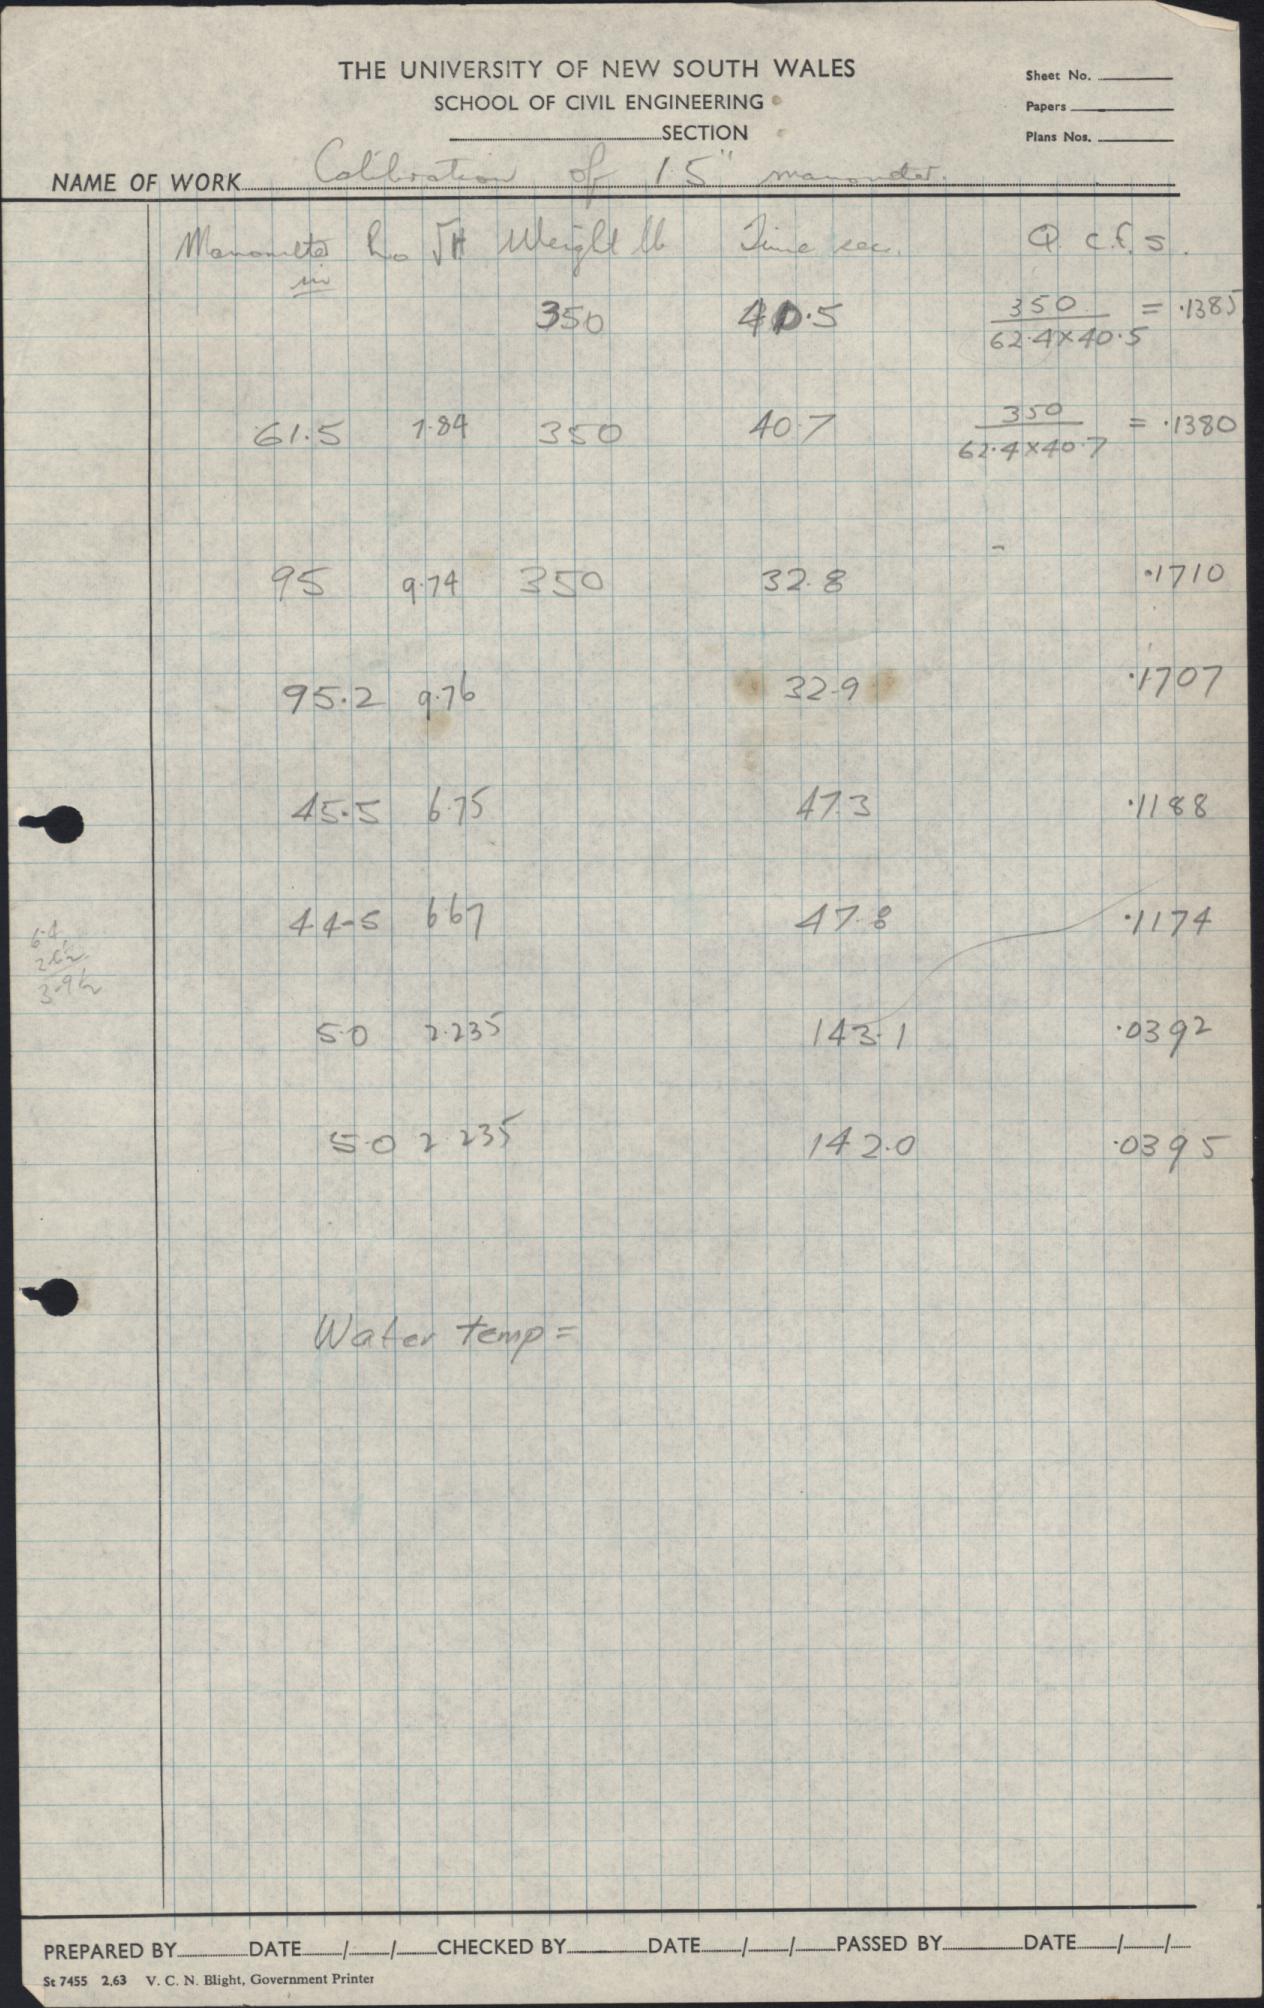 THE UNIVERSITY OF NEW SOUTH WALES
Sheet No.
SCHOOL OF CIVIL ENGINEERING
Papers
SECTION
Plans Nos.
NAME OF WORK Calibration of 1.5" manometer.
Manometer ho √H Weight lb Time sec. Q c.f.s.
in
350 40.5 350 / 62.4×40.5 = .1385
61.5 7.84 350 40.7 350 / 62.4×40.7 = .1380
95 9.74 350 32.8 .1710
95.2 9.76 32.9 .1707
45.5 6.75 47.3 .1188
44.5 667 47.8 .1174
5.0 2.235 143.1 .0392
5.0 2.235 142.0 .0395
Water temp =
PREPARED BY DATE / / CHECKED BY DATE / / PASSED BY DATE / /
St 7455 2.63 V. C. N. Blight, Government Printer